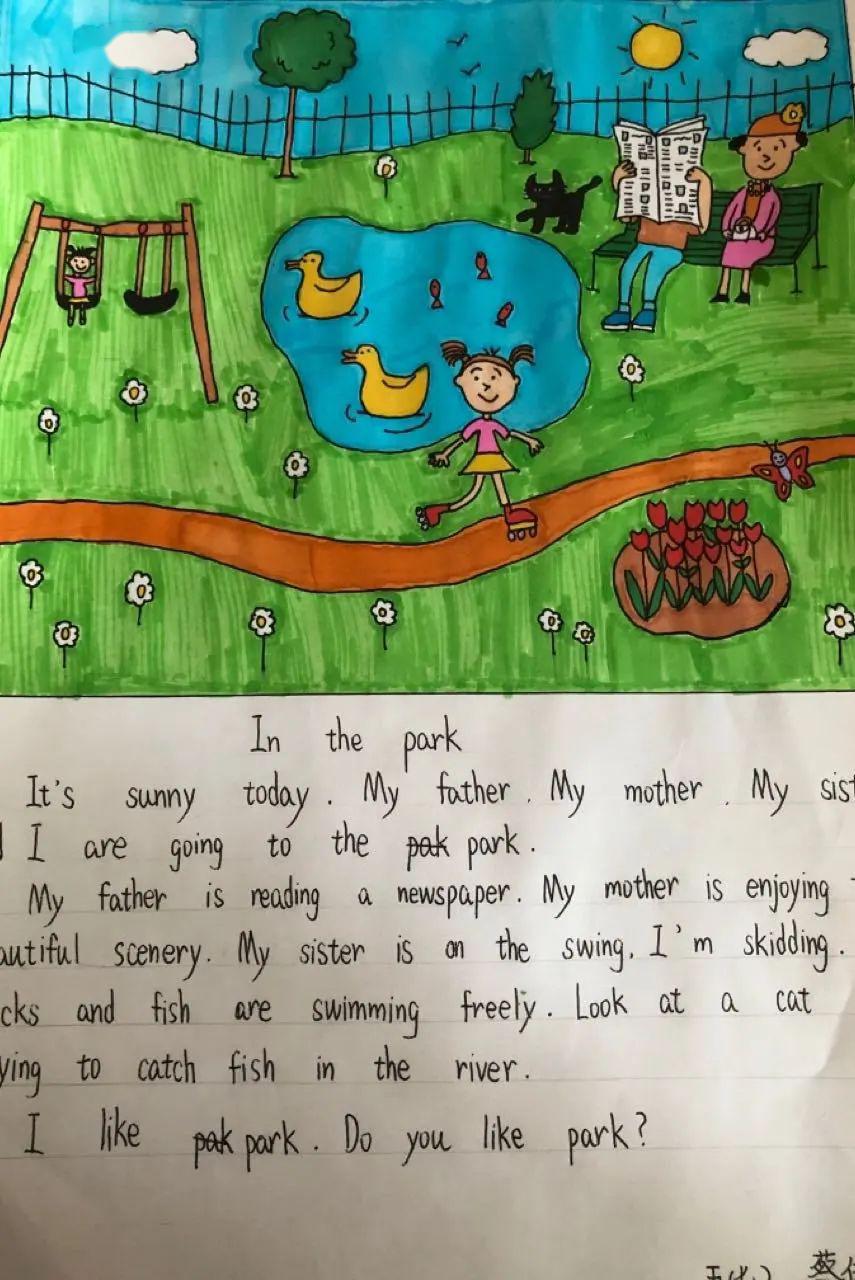 In the park
It's sunny today. My father. My mother. My sist
I are going to the pak park.
My father is reading a newspaper. My mother is enjoying
autiful scenery. My sister is on the swing. I'm skidding.
cks and fish are swimming freely. Look at a cat
ying to catch fish in the river.
I like pak park. Do you like park?